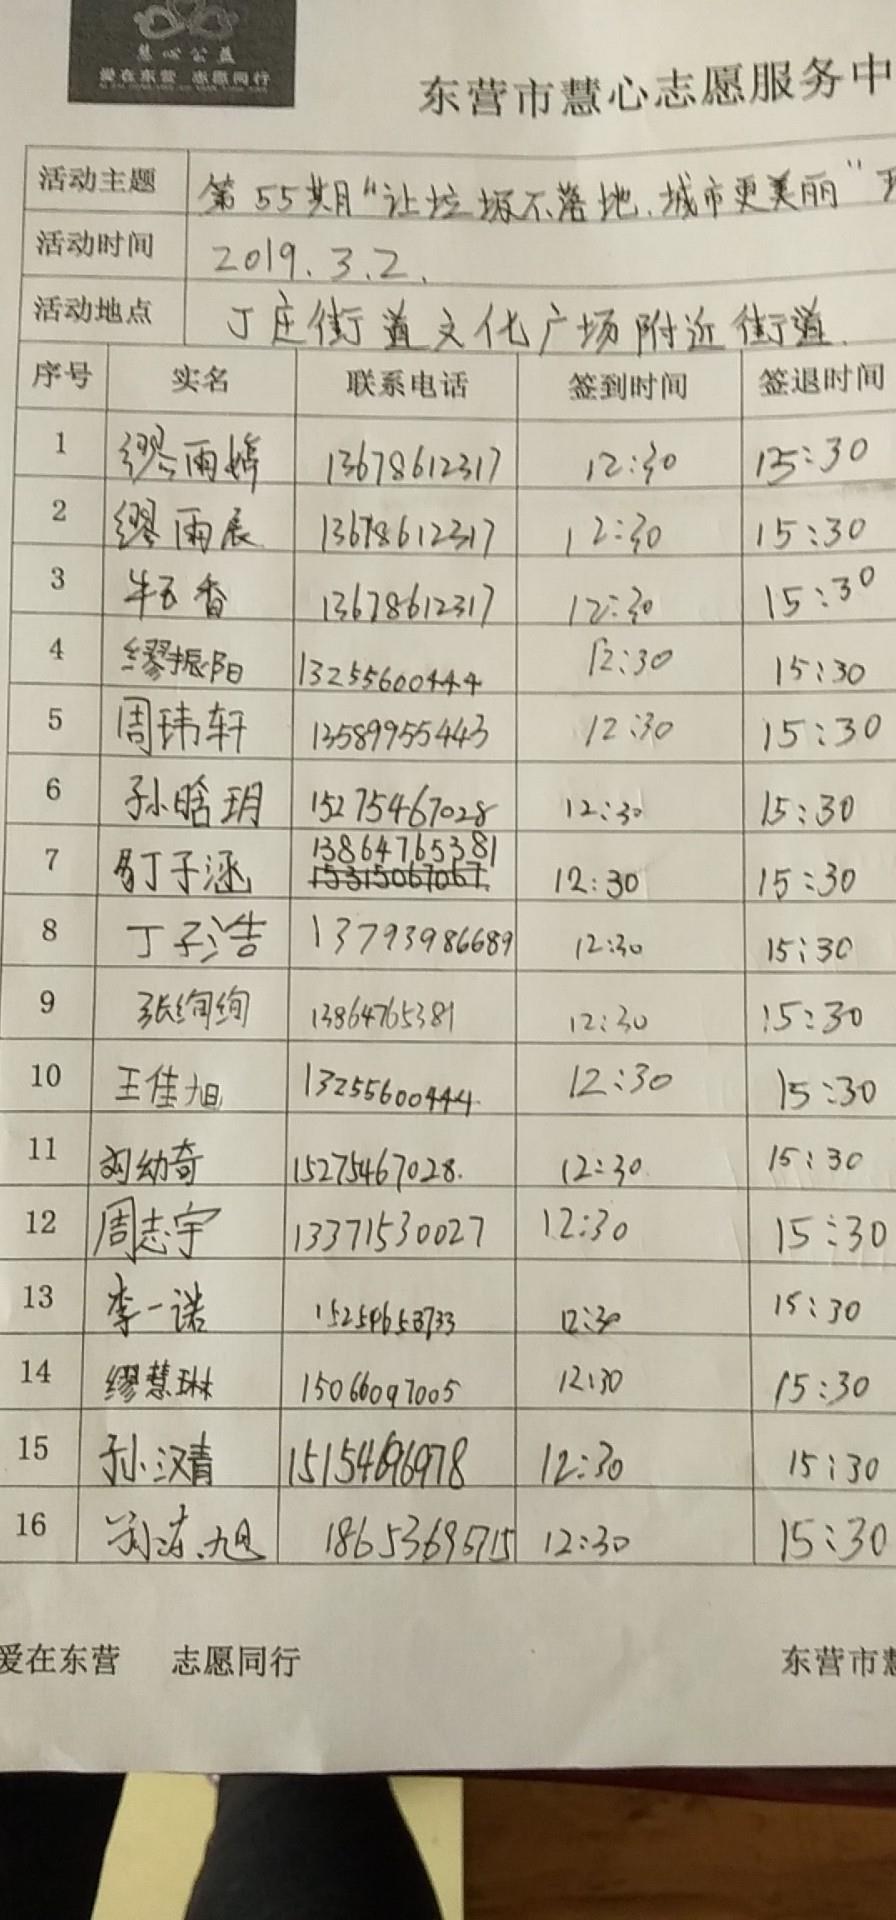 慧心公益
爱在东营 志愿同行
东营市慧心志愿服务中
活动主题 第55期“让垃圾不落地、城市更美丽”
活动时间 2019.3.2.
活动地点 丁庄街道文化广场附近街道.
序号 实名 联系电话 签到时间 签退时间
1 缪雨婷 13678612317 12:30 15:30
2 缪雨辰 13678612317 12:30 15:30
3 牛五香 13678612317 12:30 15:30
4 缪振阳 13255600444 12:30 15:30
5 周玮轩 13589955443 12:30 15:30
6 孙晗玥 15275467028 12:30 15:30
7 丁子涵 13864765381 12:30 15:30
15315067067
8 丁子浩 13793986689 12:30 15:30
9 张绚绚 13864765381 12:30 15:30
10 王佳旭 13255600444 12:30 15:30
11 刘幼奇 15275467028. 12:30 15:30
12 周志宇 13371530027 12:30 15:30
13 李一诺 15254653733 12:30 15:30
14 缪慧琳 15066097005 12:30 15:30
15 孙汉青 15154696978 12:30 15:30
16 旭 18653695715 12:30 15:30
爱在东营 志愿同行 东营市慧